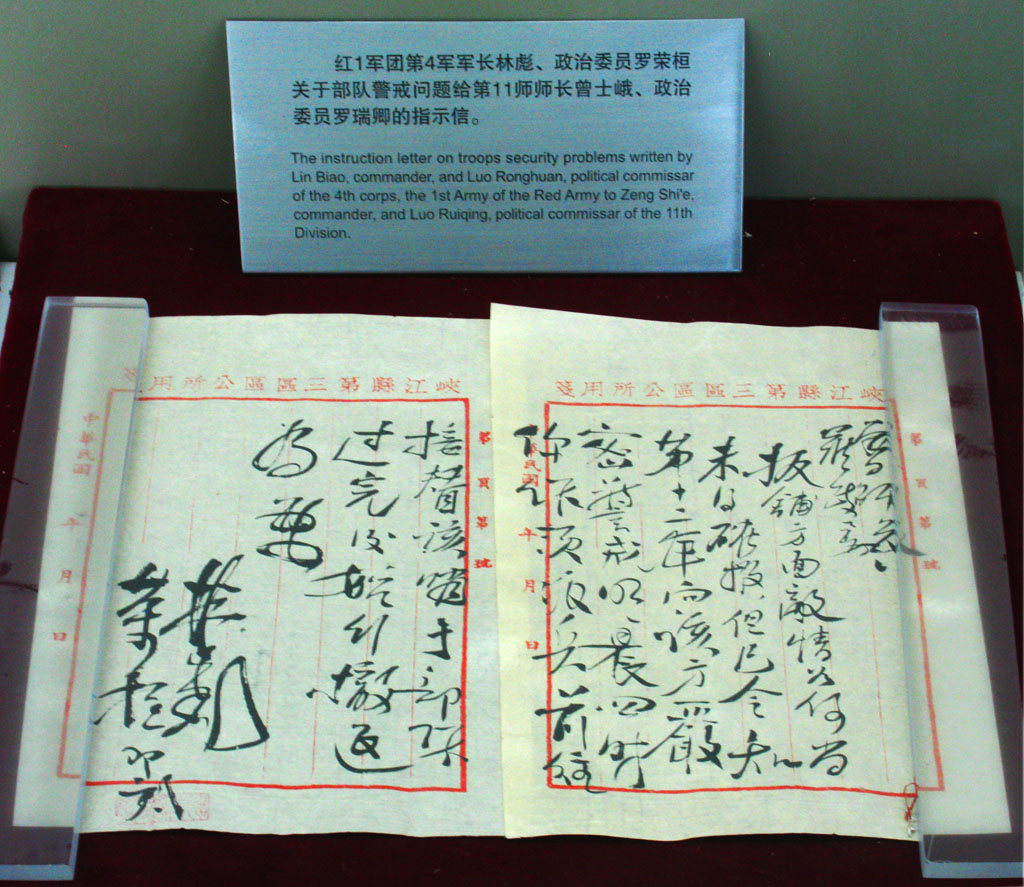 红1军团第4军军长林彪、政治委员罗荣桓
关于部队警戒问题给第11师师长曾士峨、政治
委员罗瑞卿的指示信。
The instruction letter on troops security problems written by
Lin Biao, commander, and Luo Ronghuan, political commissar
of the 4th corps, the 1st Army of the Red Army to Zeng Shi'e,
commander, and Luo Ruiqing, political commissar of the 11th
Division.
峽江縣第三區區公所用箋
第 頁 第 號
方面敵情如何尚
未得確报但已令知
第十二軍向該方嚴
密警戒明晨四時
你 須派兵前往
華民國 年 月 日
峽江縣第三區區公所用箋
第 頁 第 號
接替該哨于部队
过完后始行撤返
为要
林彪
荣桓
中華民國 年 月 日